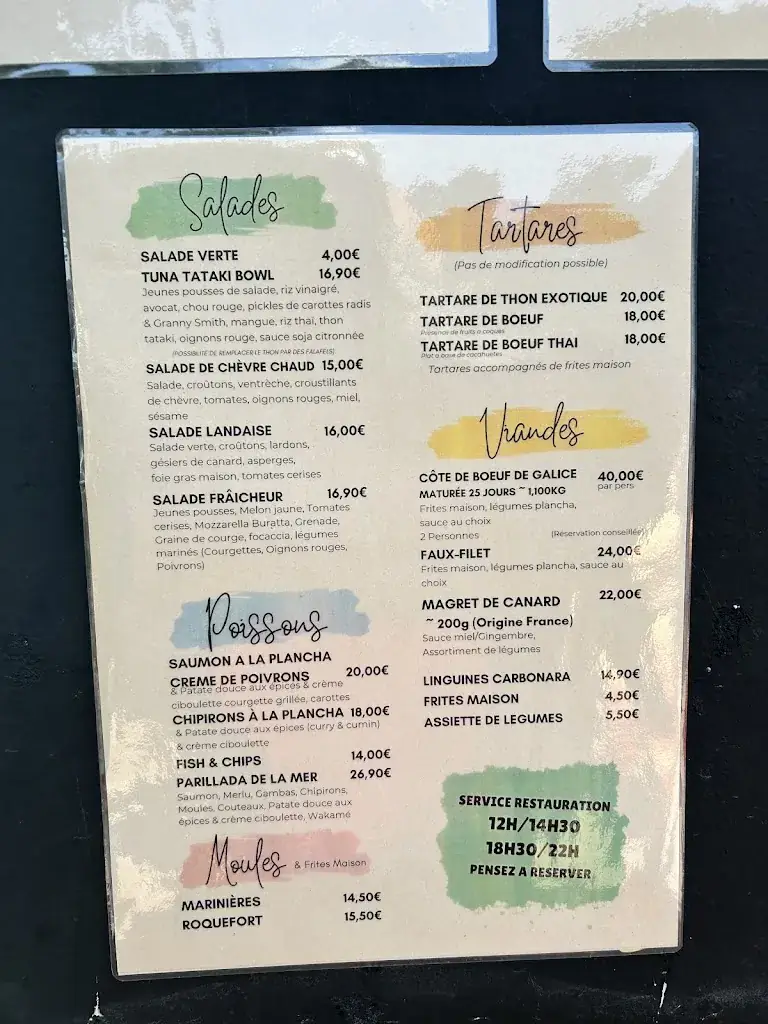 Salades
SALADE VERTE 4,00€
TUNA TATAKI BOWL 16,90€
Jeunes pousses de salade, riz vinaigré,
avocat, chou rouge, pickles de carottes radis
& Granny Smith, mangue, riz thai, thon
tataki, oignons rouge, sauce soja citronnée
(POSSIBLITÉ DE REMPLACER LE THON PAR DES FALAFELS)
SALADE DE CHÈVRE CHAUD 15,00€
Salade, croûtons, ventrèche, croustillants
de chèvre, tomates, oignons rouges, miel,
sésame
SALADE LANDAISE 16,00€
Salade verte, croûtons, lardons,
gésiers de canard, asperges,
foie gras maison, tomates cerises
SALADE FRAÎCHEUR 16,90€
Jeunes pousses, Melon jaune, Tomates
cerises, Mozzarella Buratta, Grenade,
Graine de courge, focaccia, légumes
marinés (Courgettes, Oignons rouges,
Poivrons)
Poissons
SAUMON A LA PLANCHA
CREME DE POIVRONS 20,00€
& Patate douce aux épices & crème
ciboulette courgette grillée, carottes
CHIPIRONS À LA PLANCHA 18,00€
& Patate douce aux épices (curry & cumin)
& crème ciboulette
FISH & CHIPS 14,00€
PARILLADA DE LA MER 26,90€
Saumon, Merlu, Gambas, Chipirons,
Moules, Couteaux, Patate douce aux
épices & crème ciboulette, Wakamé
Moules & Frites Maison
MARINIÈRES 14,50€
ROQUEFORT 15,50€
Tartares
(Pas de modification possible)
TARTARE DE THON EXOTIQUE 20,00€
TARTARE DE BOEUF 18,00€
Présence de fruits à coques
TARTARE DE BOEUF THAI 18,00€
Plat a base de cacahuetes
Tartares accompagnés de frites maison
Viandes
CÔTE DE BOEUF DE GALICE 40,00€
MATURÉE 25 JOURS ~ 1,100KG par pers
Frites maison, légumes plancha,
sauce au choix
2 Personnes (Réservation conseillée)
FAUX-FILET 24,00€
Frites maison, légumes plancha, sauce au
choix
MAGRET DE CANARD 22,00€
~ 200g (Origine France)
Sauce miel/Gingembre,
Assortiment de légumes
LINGUINES CARBONARA 14,90€
FRITES MAISON 4,50€
ASSIETTE DE LEGUMES 5,50€
SERVICE RESTAURATION
12H/14H30
18H30/22H
PENSEZ A RESERVER